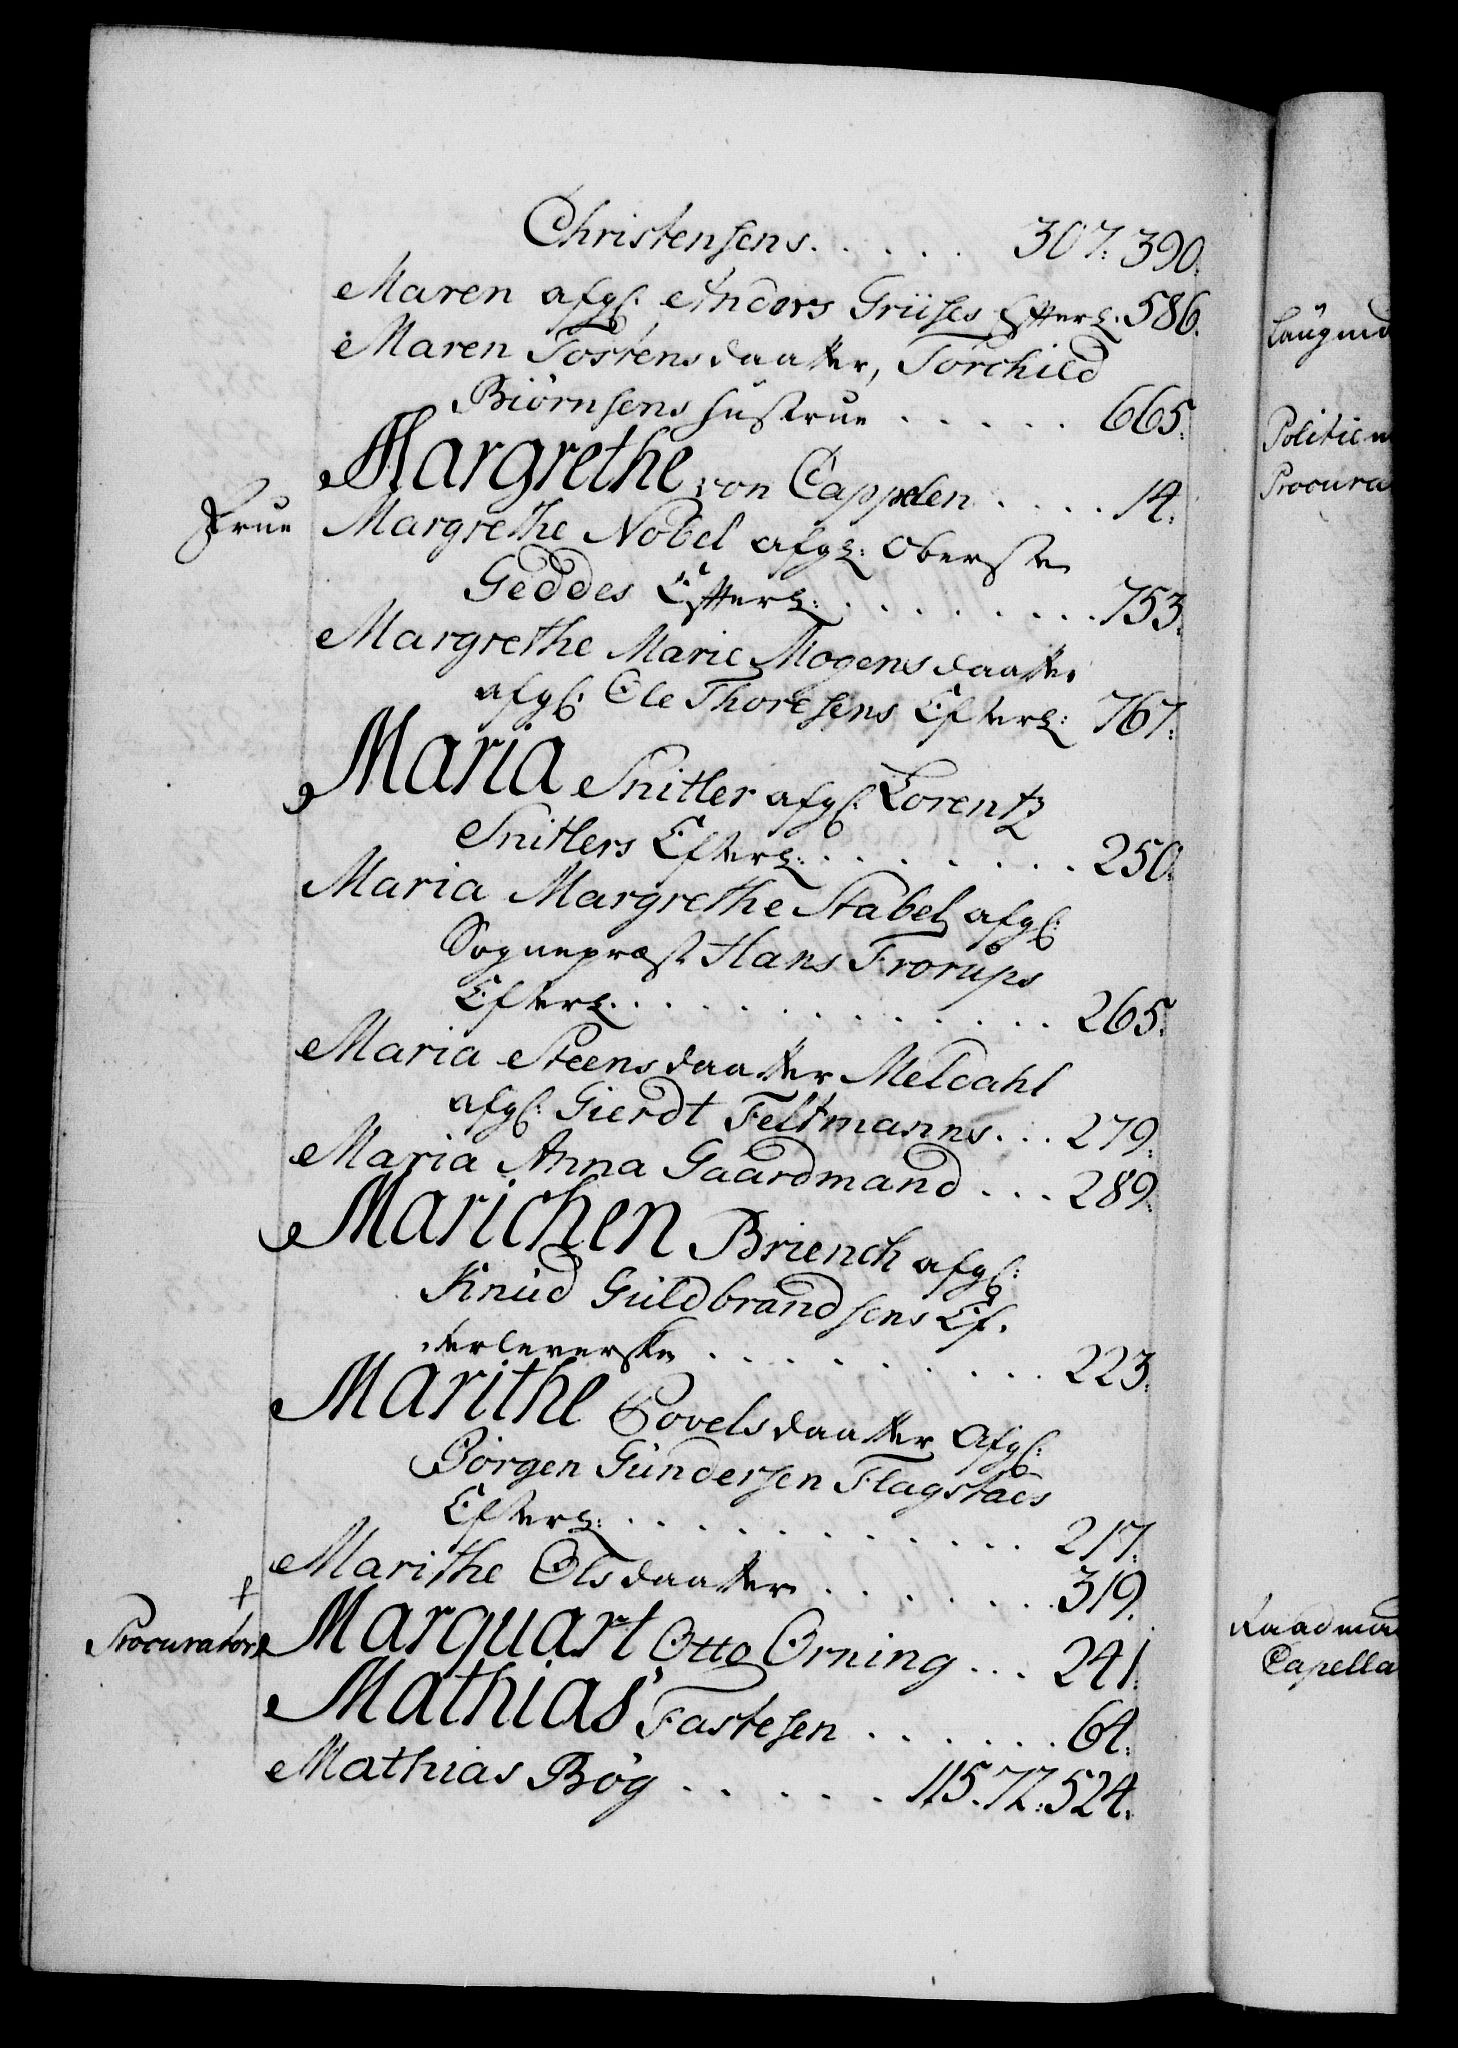 Christensens. . . . . 307. 390.
Maren afgl. Anders Grüses Efterl. 586.
Maren Tostensdaatter, Torchild
Biørnsens Hustrue . . . . . 665.
Margrethe von Cappelen . . . . 14.
Frue Margrethe Nobel afgl: Oberste
Geddes Efterl: . . . . . . . 753.
Margrethe Marie Mogensdaatter
afgl. Ole Thoresens Efterl: 767.
Maria Snitler afgl. Lorentz
Snitlers Efterl: . . . . . . . 250.
Maria Margrethe Stabel afgl.
Sognepræst Hans Frorüps
Efterl. . . . . . . . . . . . 265.
Maria Steensdaatter Meldahl
afgl. Gierdt Feltmanns. . . 279.
Maria Anna Gaardmand . . . 289.
Marichen Briench afgl:
Knüd Güldbrandsens Ef-
terleverske . . . . . . . . . 223.
Marithe Povelsdaatter Afgl.
Børgen Gündersen Flagstads
Efterl: . . . . . . . . . . . 217.
Marithe Olsdaatter . . . . . . 319.
†
Procurator Marquart Otto Orning . . . 241.
Mathias Fastesen . . . . . . 64.
Mathias Bøg . . . . . 115. 72. 524.
Laügmd
Politiem
Procura
Raadma
Capella